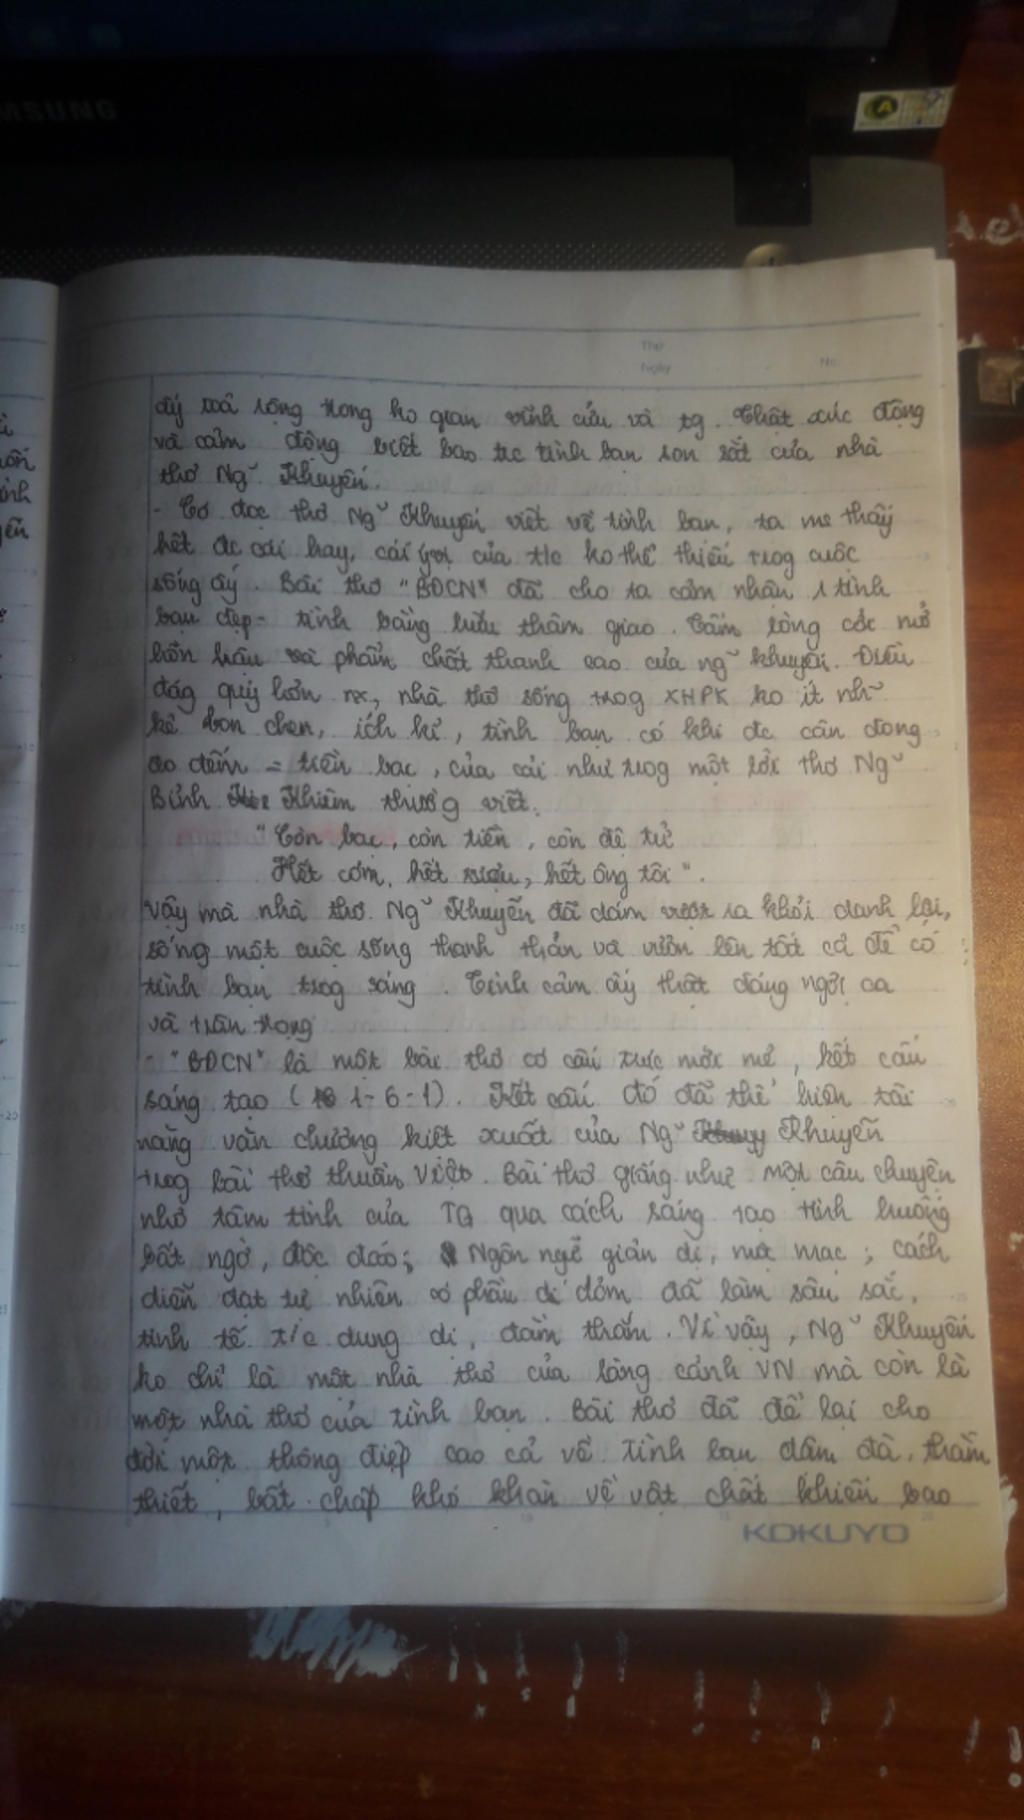 MSUNG
Thứ
Ngày
No.
ấy toả rộng trong ko gian vĩnh cửu và tg. Thật xúc động
và cảm động biết bao trc tình bạn son sắt của nhà
thơ Ng~ Khuyến.
- Có đọc thơ Ng~ Khuyến viết về tình bạn, ta ms thấy
hết đc cái hay, cái của t/c ko thể thiếu trog cuộc
sống ấy. Bài thơ "BĐCN" đã cho ta cảm nhận 1 tình
bạn đẹp - tình bằng hữu thâm giao. Tấm lòng cởi mở
hồn hậu và phẩm chất thanh cao của ng~ khuyến. Điều
đág quý hơn nx, nhà thơ sống trog XHPK ko ít nh~
kẻ bon chen, ích kỉ, tình bạn có khi đc cân đong
đo đếm = tiền bạc, của cải như trog một lời thơ Ng~
Bỉnh Khiêm thường viết:
"Còn bạc, còn tiền, còn đệ tử
Hết cơm, hết rượu, hết ông tôi".
Vậy mà nhà thơ Ng~ Khuyến đã dám vượt ra khỏi danh lợi,
sống một cuộc sống thanh thản và vươn lên tất cả để có
tình bạn trog sáng. Tình cảm ấy thật đáng ngợi ca
và trân trọng
- "BĐCN" là một bài thơ có cấu trúc mới mẻ, kết cấu
sáng tạo (1-6-1). Kết cấu đó đã thể hiện tài
năng văn chương kiệt xuất của Ng~ Khuyến
trog bài thơ thuần Việt. Bài thơ giống như một câu chuyện
nhỏ tâm tình của TG qua cách sáng tạo tình huống
bất ngờ, độc đáo; Ngôn ngữ giản dị, mộc mạc; cách
diễn đạt tự nhiên có phần dí dỏm đã làm sâu sắc,
tinh tế t/c dung dị, đằm thắm. Vì vậy, Ng~ Khuyến
ko chỉ là một nhà thơ của làng cảnh VN mà còn là
một nhà thơ của tình bạn. Bài thơ đã để lại cho
đời một thông điệp cao cả về tình bạn đậm đà, thắm
thiết, bất chấp khó khăn về vật chất khiến bao
KOKUYO